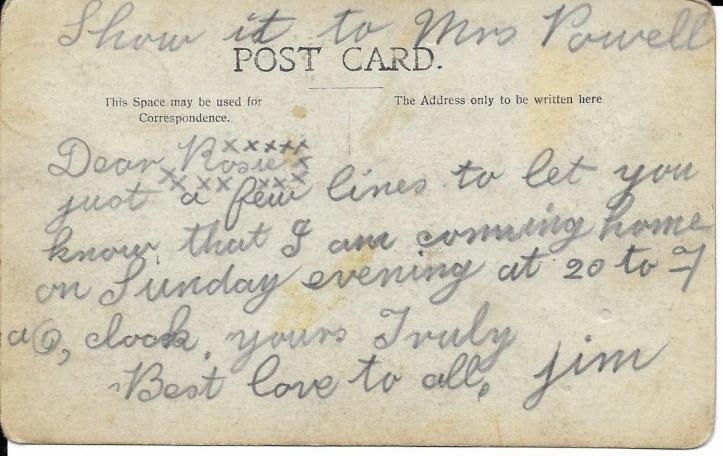 Show it to Mrs Powell
POST CARD.
This Space may be used for
Correspondence.
The Address only to be written here
Dear Rosie xxxxx
x
xx xx xxx
just a few lines to let you
know that I am comming home
on Sunday evening at 20 to 7
clock, yours Truly
Best love to all, Jim